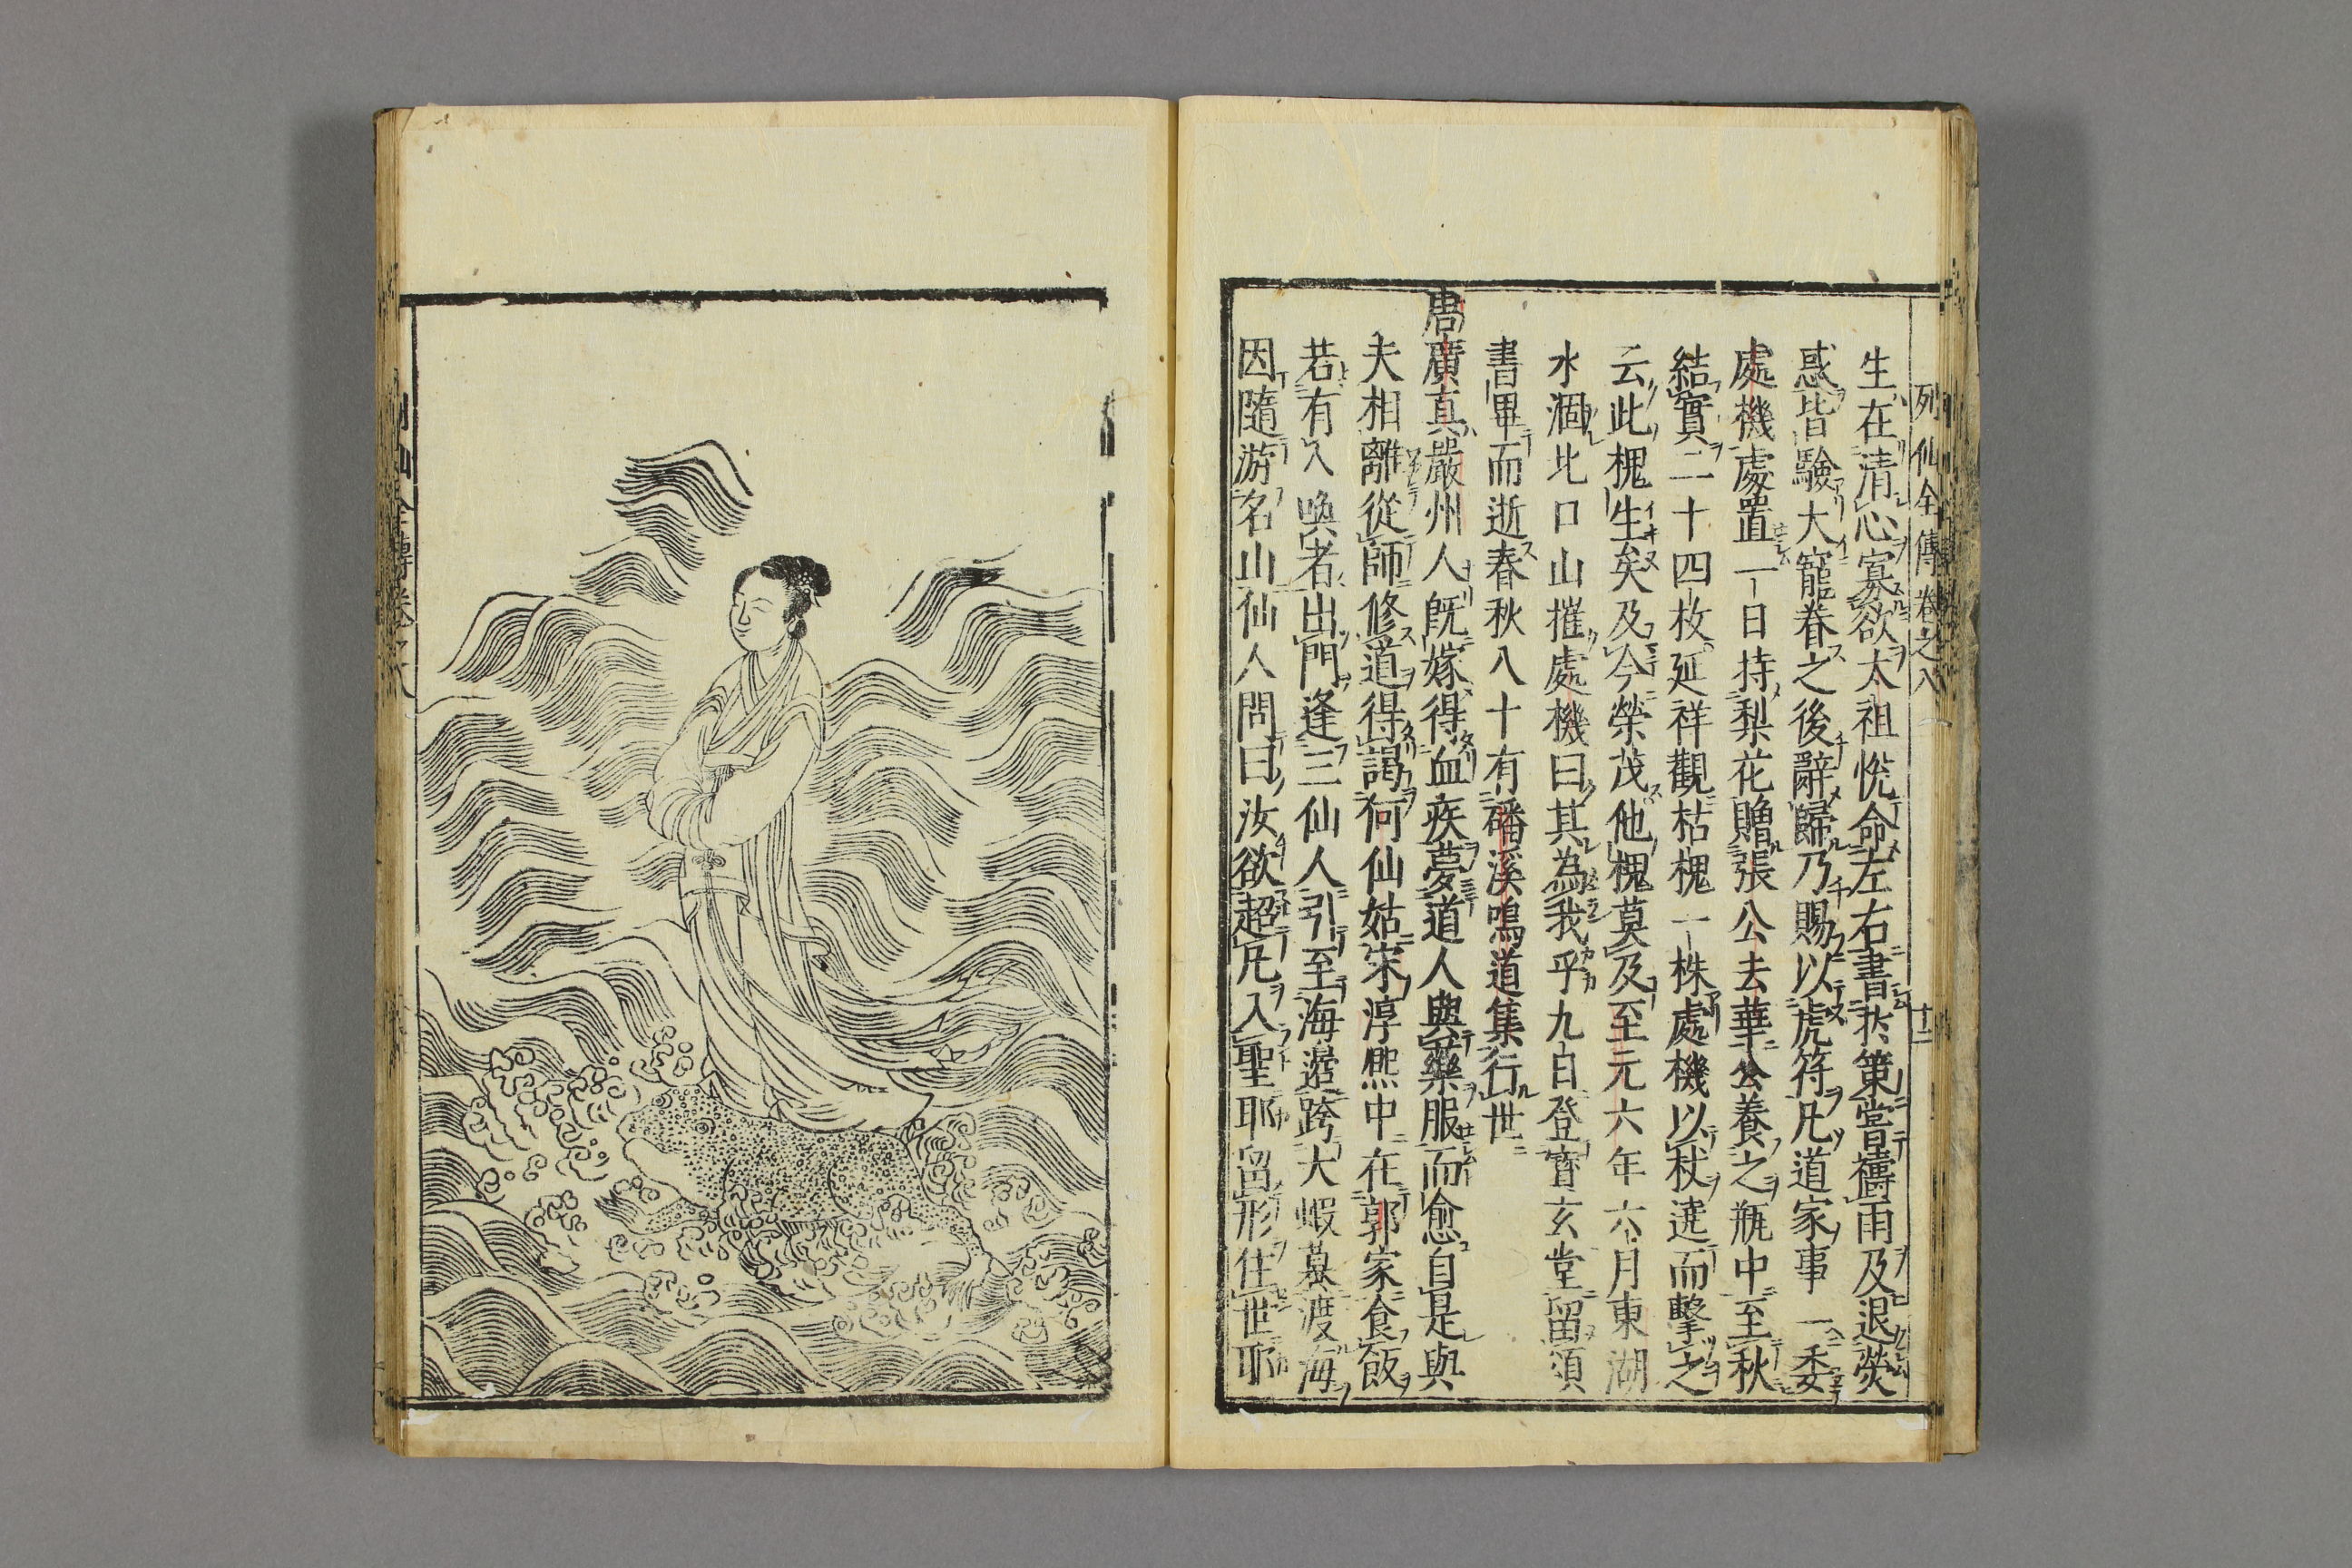 列仙全傳卷之八 十二
生在清心寡欲太祖悅命左右書於策嘗禱雨及退熒
惑皆驗大寵眷之後辭歸乃賜以虎符凡道家事一委
處機處置一日持梨花贈張公去華公養之瓶中至秋
結實二十四枚延祥觀枯槐一株處機以杖逹而擊之
云此槐生矣及今榮茂他槐莫及至元六年六月東湖
水涸北口山摧處機曰其為我乎九日登寶玄堂留頌
書畢而逝春秋八十有磻溪鳴道集行世
唐廣真嚴州人旣嫁得血疾夢道人與藥服而愈自是與
夫相離從師修道得謁何仙姑宋淳熙中在郭家食飯
若有人喚者出門逢三仙人引至海邊跨大蝦蟇渡海
因隨游名山仙人問曰汝欲超凡入聖耶留形住世耶